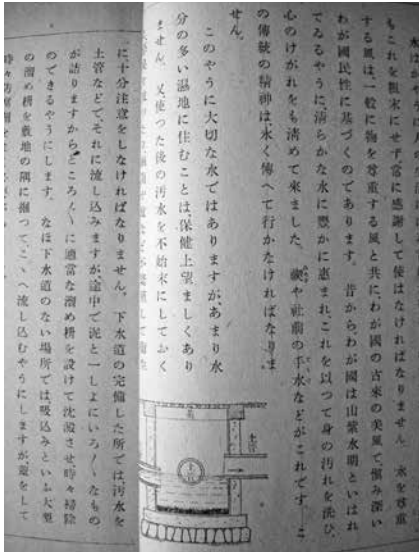 もこれを粗末にせず常に感謝して使はなければなりません。水を尊重
する風は、一般に物を尊重する風と共に、わが國の古來の美風で、愼み深い
わが國民性に基づくのであります。昔から、わが國は山紫水明といはれ
てゐるやうに、淸らかな水に豐かに惠まれ、これを以つて身の汚れを洗ひ、
心のけがれをも淸めて來ました。禊や社前の手水などがこれです。こ
の傳統の精神は、永く傳へて行かなければなりま
せん。
このやうに大切な水ではありますが、あまり水
分の多い濕地に住むことは、保健上望ましくあり
ません。又、使つた後の汚水を不始末にしておく
に十分注意をしなければなりません。下水道の完備した所では、汚水を
土管などで、それに流し込みますが、途中で泥と一しよにいろ〱なもの
が詰りますから、ところ〲に適當な溜め枡を設けて沈澱させ、時々掃除
のできるやうにします。なほ下水道のない場所では、吸込みといふ大型
の溜め枡を敷地の隅に掘つて、こゝへ流し込むやうにしますが、蓋をして
土管